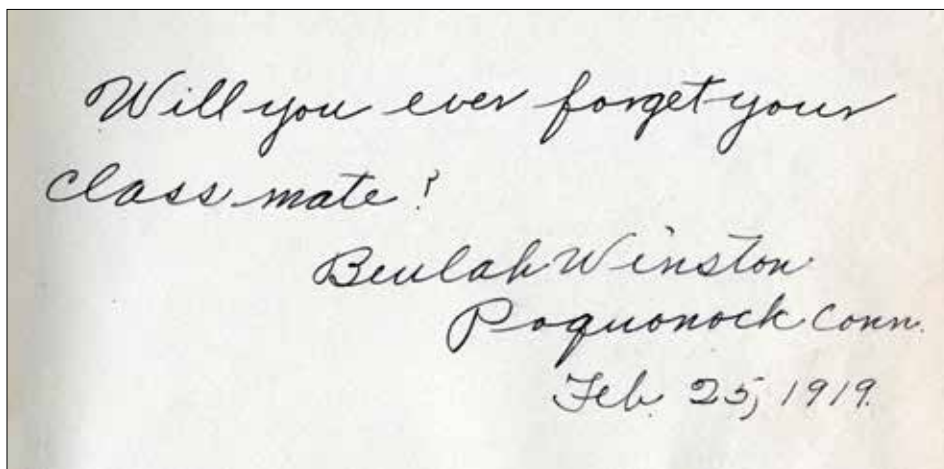 Will you ever forget your
class mate?
Beulah Winston
Poquonock Conn.
Feb. 25, 1919.